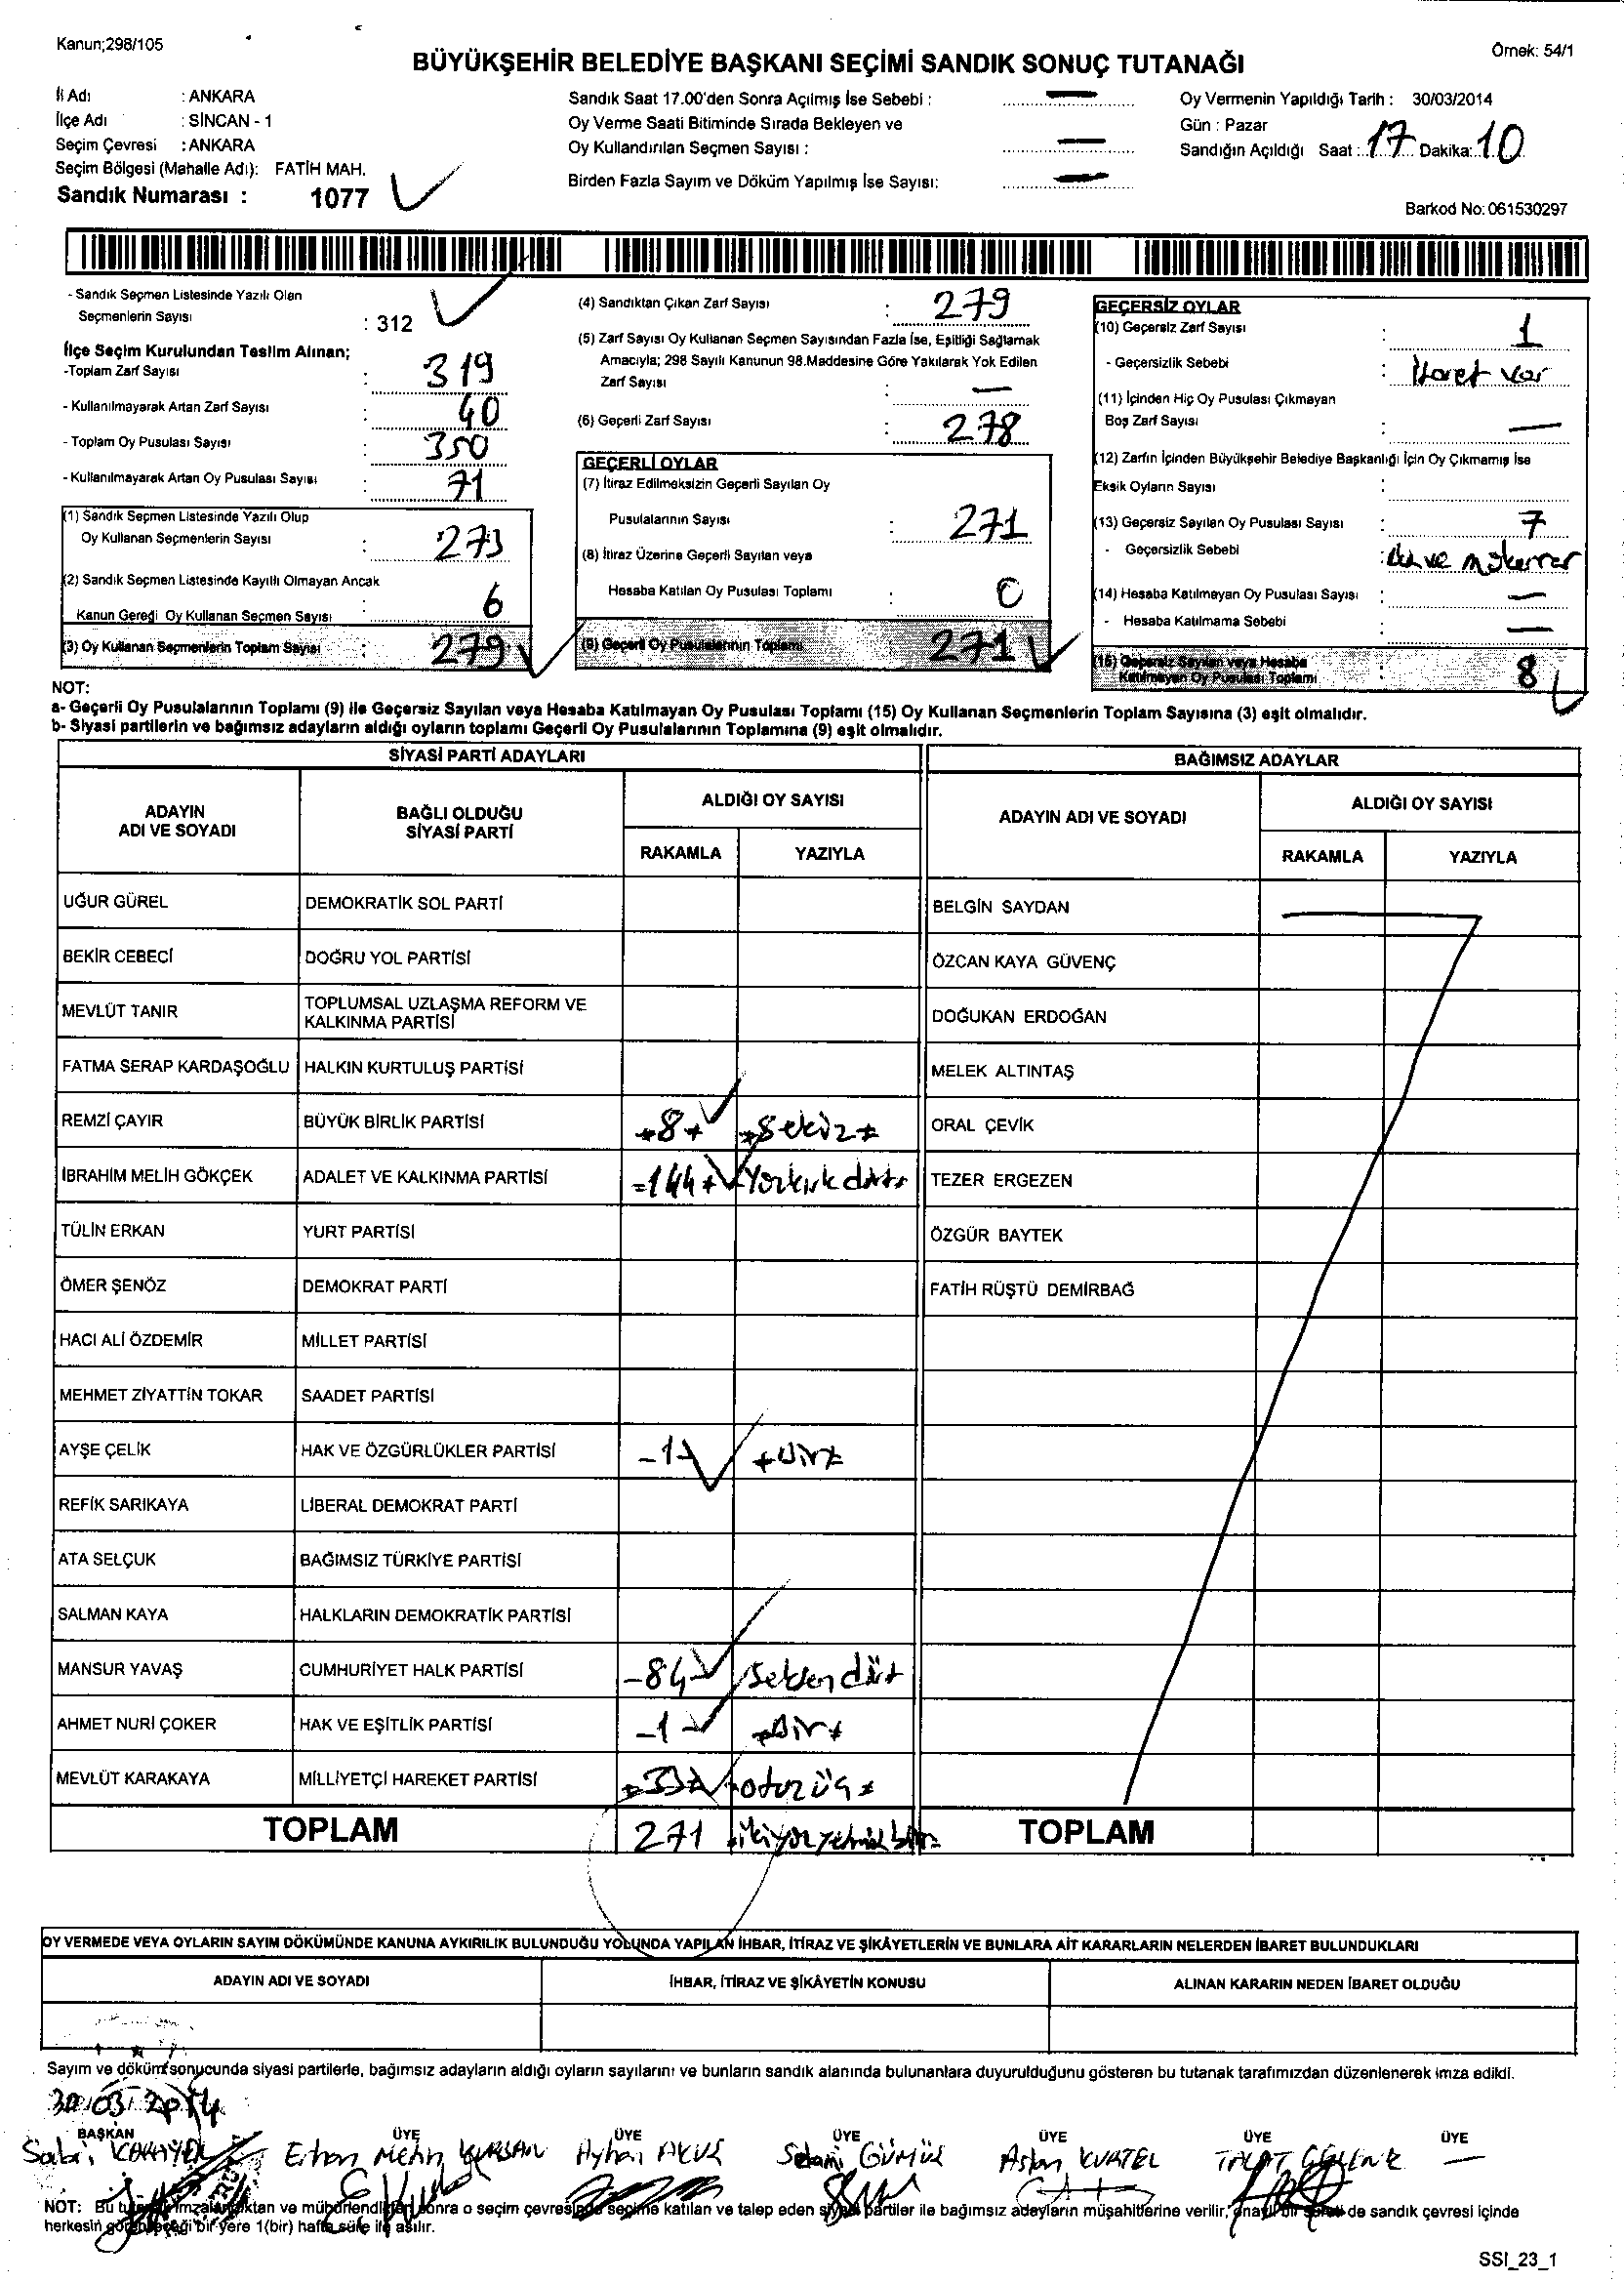 Kanun;298/105
Örnek: 54/1
BÜYÜKŞEHİR BELEDİYE BAŞKANI SEÇİMİ SANDIK SONUÇ TUTANAĞI
İl Adı : ANKARA
İlçe Adı : SİNCAN - 1
Seçim Çevresi : ANKARA
Seçim Bölgesi (Mahalle Adı): FATİH MAH.
Sandık Numarası : 1077
Sandık Saat 17.00'den Sonra Açılmış İse Sebebi : —
Oy Verme Saati Bitiminde Sırada Bekleyen ve
Oy Kullandırılan Seçmen Sayısı : —
Birden Fazla Sayım ve Döküm Yapılmış İse Sayısı: —
Oy Vermenin Yapıldığı Tarih : 30/03/2014
Gün : Pazar
Sandığın Açıldığı Saat : 17 Dakika: 10
Barkod No: 061530297
- Sandık Seçmen Listesinde Yazılı Olan
Seçmenlerin Sayısı : 312
İlçe Seçim Kurulundan Teslim Alınan;
-Toplam Zarf Sayısı : 319
- Kullanılmayarak Artan Zarf Sayısı : 40
- Toplam Oy Pusulası Sayısı : 350
- Kullanılmayarak Artan Oy Pusulası Sayısı : 71
(1) Sandık Seçmen Listesinde Yazılı Olup
Oy Kullanan Seçmenlerin Sayısı : 273
(2) Sandık Seçmen Listesinde Kayıtlı Olmayan Ancak
Kanun Gereği Oy Kullanan Seçmen Sayısı : 6
(3) Oy Kullanan Seçmenlerin Toplam Sayısı : 279
(4) Sandıktan Çıkan Zarf Sayısı : 279
(5) Zarf Sayısı Oy Kullanan Seçmen Sayısından Fazla İse, Eşitliği Sağlamak
Amacıyla; 298 Sayılı Kanunun 98.Maddesine Göre Yakılarak Yok Edilen
Zarf Sayısı : —
(6) Geçerli Zarf Sayısı : 278
GEÇERLİ OYLAR
(7) İtiraz Edilmeksizin Geçerli Sayılan Oy
Pusulalarının Sayısı : 271
(8) İtiraz Üzerine Geçerli Sayılan veya
Hesaba Katılan Oy Pusulası Toplamı : 0
(9) Geçerli Oy Pusulalarının Toplamı 271
GEÇERSİZ OYLAR
(10) Geçersiz Zarf Sayısı : 1
- Geçersizlik Sebebi : İşaret var
(11) İçinden Hiç Oy Pusulası Çıkmayan
Boş Zarf Sayısı : —
(12) Zarfın İçinden Büyükşehir Belediye Başkanlığı İçin Oy Çıkmamış İse
Eksik Oyların Sayısı :
(13) Geçersiz Sayılan Oy Pusulası Sayısı : 7
- Geçersizlik Sebebi : ve mükerrer
(14) Hesaba Katılmayan Oy Pusulası Sayısı : —
- Hesaba Katılmama Sebebi —
(15) Geçersiz Sayılan veya Hesaba
Katılmayan Oy Pusulası Toplamı : 8
NOT:
a- Geçerli Oy Pusulalarının Toplamı (9) ile Geçersiz Sayılan veya Hesaba Katılmayan Oy Pusulası Toplamı (15) Oy Kullanan Seçmenlerin Toplam Sayısına (3) eşit olmalıdır.
b- Siyasi partilerin ve bağımsız adayların aldığı oyların toplamı Geçerli Oy Pusulalarının Toplamına (9) eşit olmalıdır.
SİYASİ PARTİ ADAYLARI
BAĞIMSIZ ADAYLAR
ADAYIN ADI VE SOYADI
BAĞLI OLDUĞU SİYASİ PARTİ
ALDIĞI OY SAYISI
RAKAMLA YAZIYLA
ADAYIN ADI VE SOYADI
ALDIĞI OY SAYISI
RAKAMLA YAZIYLA
UĞUR GÜREL DEMOKRATİK SOL PARTİ BELGİN SAYDAN
BEKİR CEBECİ DOĞRU YOL PARTİSİ ÖZCAN KAYA GÜVENÇ
MEVLÜT TANIR TOPLUMSAL UZLAŞMA REFORM VE KALKINMA PARTİSİ DOĞUKAN ERDOĞAN
FATMA SERAP KARDAŞOĞLU HALKIN KURTULUŞ PARTİSİ MELEK ALTINTAŞ
REMZİ ÇAYIR BÜYÜK BİRLİK PARTİSİ 8 Sekiz ORAL ÇEVİK
İBRAHİM MELİH GÖKÇEK ADALET VE KALKINMA PARTİSİ 144 Yüzkırkdört TEZER ERGEZEN
TÜLİN ERKAN YURT PARTİSİ ÖZGÜR BAYTEK
ÖMER ŞENÖZ DEMOKRAT PARTİ FATİH RÜŞTÜ DEMİRBAĞ
HACI ALİ ÖZDEMİR MİLLET PARTİSİ
MEHMET ZİYATTİN TOKAR SAADET PARTİSİ
AYŞE ÇELİK HAK VE ÖZGÜRLÜKLER PARTİSİ 1 bir
REFİK SARIKAYA LİBERAL DEMOKRAT PARTİ
ATA SELÇUK BAĞIMSIZ TÜRKİYE PARTİSİ
SALMAN KAYA HALKLARIN DEMOKRATİK PARTİSİ
MANSUR YAVAŞ CUMHURİYET HALK PARTİSİ 84 seksendört
AHMET NURİ ÇOKER HAK VE EŞİTLİK PARTİSİ 1 bir
MEVLÜT KARAKAYA MİLLİYETÇİ HAREKET PARTİSİ 33 otuzüç
TOPLAM 271 ikiyüzyetmişbir TOPLAM
OY VERMEDE VEYA OYLARIN SAYIM DÖKÜMÜNDE KANUNA AYKIRILIK BULUNDUĞU YOLUNDA YAPILAN İHBAR, İTİRAZ VE ŞİKÂYETLERİN VE BUNLARA AİT KARARLARIN NELERDEN İBARET BULUNDUKLARI
ADAYIN ADI VE SOYADI İHBAR, İTİRAZ VE ŞİKÂYETİN KONUSU ALINAN KARARIN NEDEN İBARET OLDUĞU
Sayım ve döküm sonucunda siyasi partilerle, bağımsız adayların aldığı oyların sayılarını ve bunların sandık alanında bulunanlara duyurulduğunu gösteren bu tutanak tarafımızdan düzenlenerek imza edildi.
30.03.2014
BAŞKAN ÜYE ÜYE ÜYE ÜYE ÜYE ÜYE
Erhan Metin Ayhan Selami GÜMÜŞ Aslan —
NOT: Bu tutanak imzalandıktan ve mühürlendikten sonra o seçim çevresinde seçime katılan ve talep eden siyasi partiler ile bağımsız adayların müşahitlerine verilir, onaylı bir sureti de sandık çevresi içinde
herkesin görebileceği bir yere 1(bir) hafta süre ile asılır.
SSI_23_1